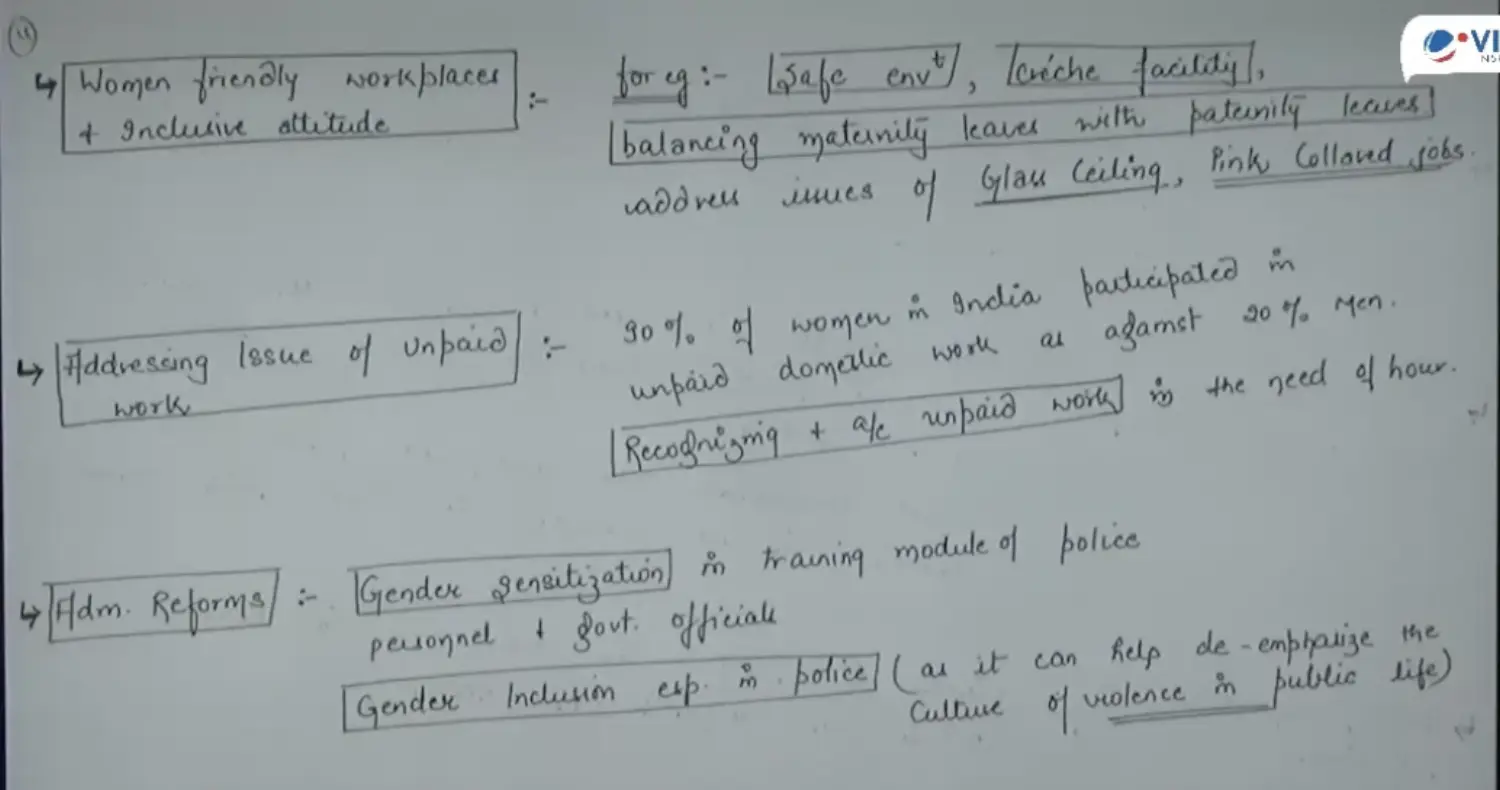 ↳ Women friendly workplaces :- for eg :- Safe envt, Créche facility,
+ Inclusive attitude
balancing maternity leaves with paternity leaves
address issues of Glass Ceiling, Pink Collared jobs.
↳ Addressing Issue of Unpaid work :- 90% of women in India participated in
unpaid domestic work as against 20% Men.
Recognizing + a/c unpaid work is the need of hour.
↳ Adm. Reforms :- Gender Sensitization in training module of police
personnel + govt. officials
Gender Inclusion esp. in police (as it can help de-emphasize the
Culture of violence in public life)
VI